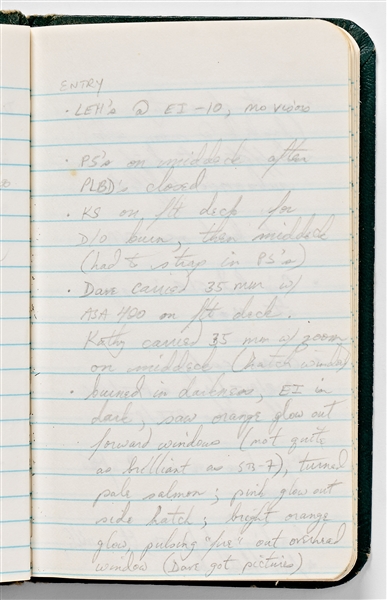 ENTRY
· LEH's @ EI -10, no visors
· PS's on middeck after
PLBD's closed
· KS on flt deck for
D/O burn, then middeck
(had to strap in PS's)
· Dave carried 35 mm w/
ASA 400 on flt deck.
Kathy carried 35 mm w/ zoom
on middeck (hatch window)
· burned in darkness, EI in
dark, saw orange glow out
forward windows (not quite
as brilliant as STS-7), turned
pale salmon; pink glow out
side hatch; bright orange
glow, pulsing "fire" out overhead
window (Dave got pictures)